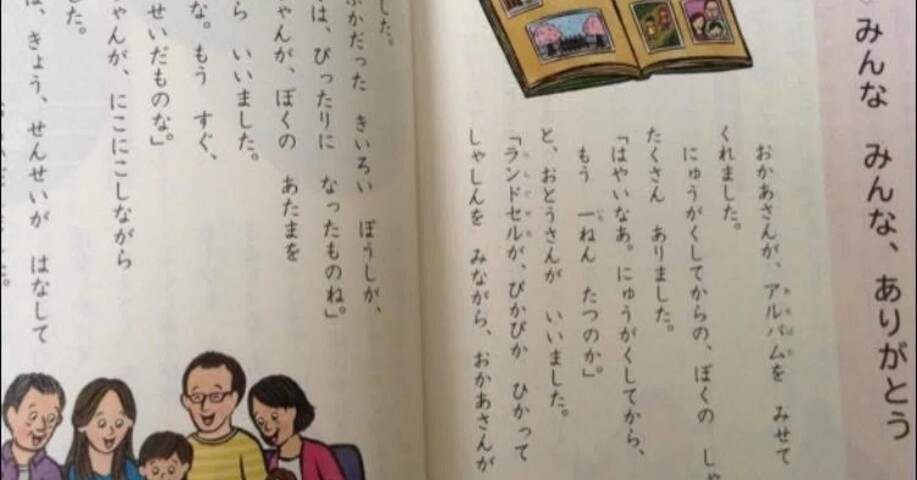 みんな みんな、ありがとう
おかあさんが、アルバムを みせて
くれました。
にゅうがくしてからの、ぼくの しゃ
たくさん ありました。
「はやいなあ。にゅうがくしてから、
もう 一ねん たつのか。」
と、おとうさんが いいました。
「ランドセルが、ぴかぴか ひかって
しゃしんを みながら、おかあさんが
した。
ぶかだった きいろい ぼうしが、
は、ぴったりに なったものね。」
ゃんが、ぼくの あたまを
ら いいました。
な。もう すぐ、
せいだものな。」
ゃんが、にこにこしながら
た。
は、きょう、せんせいが はなして